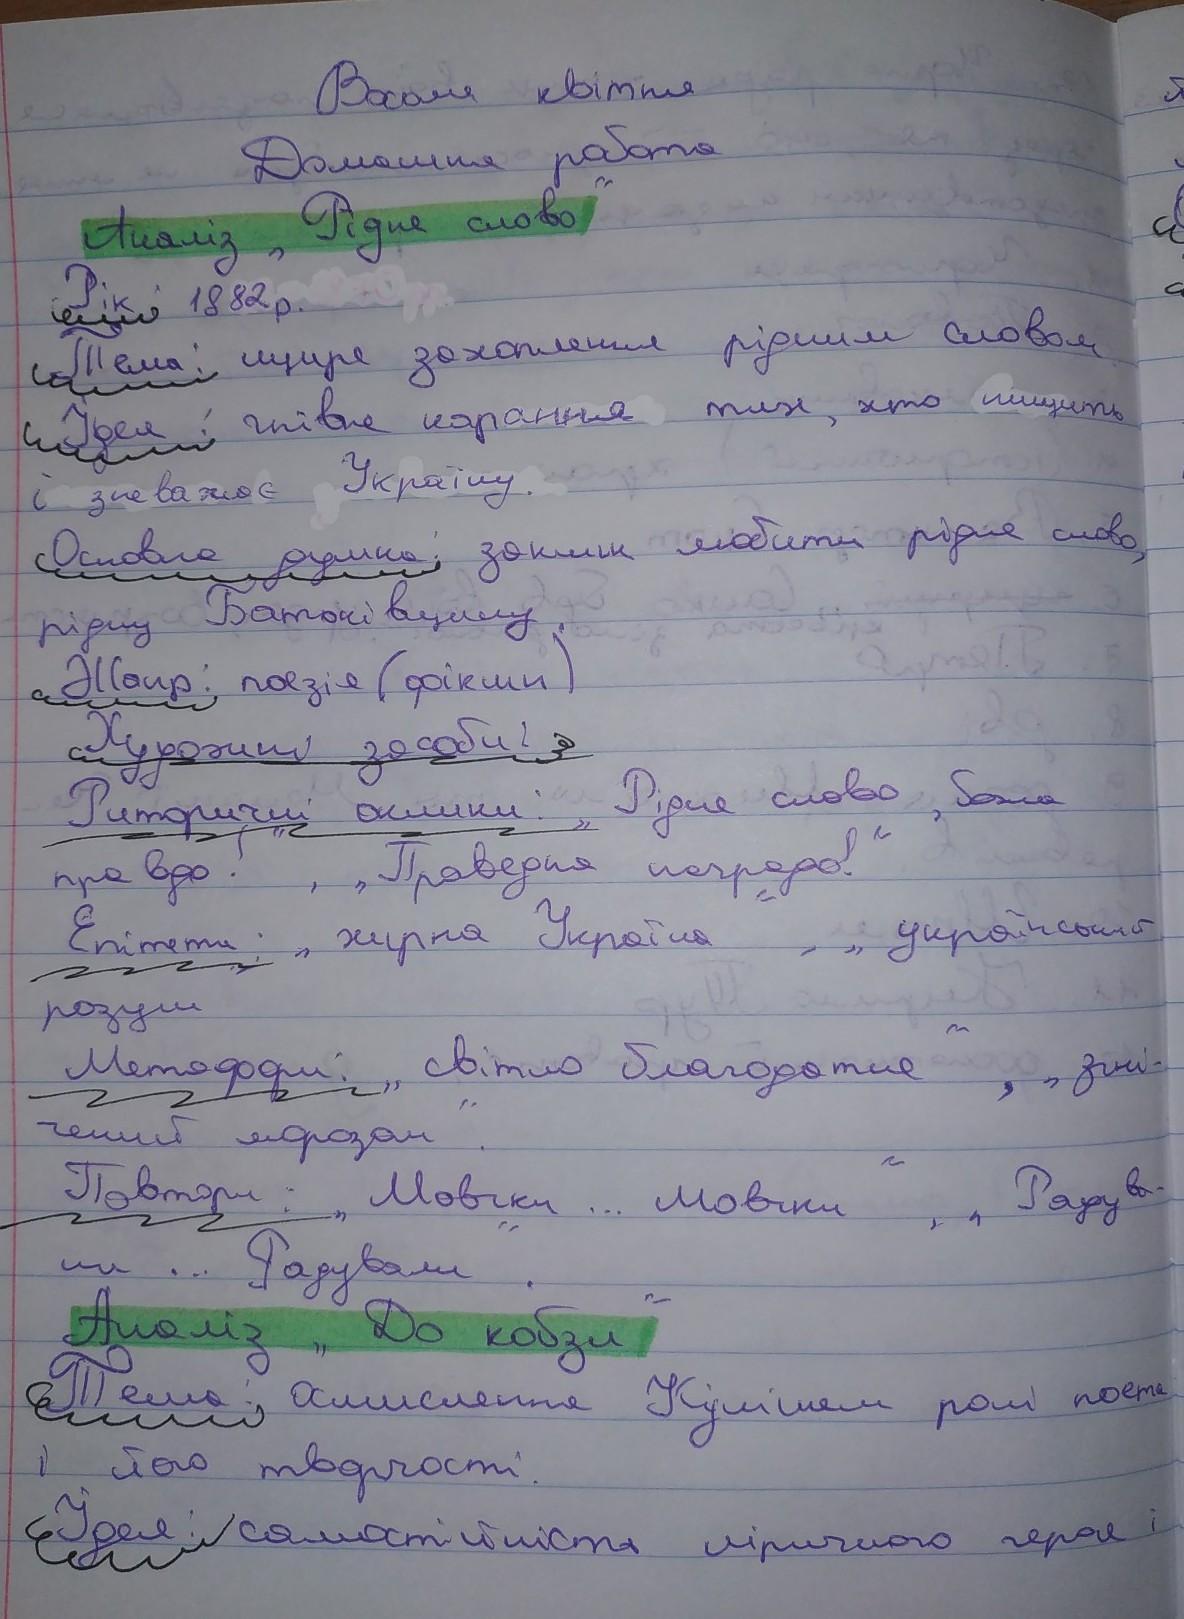 Восьме квітня
Домашня робота
Аналіз „Рідне слово"
Рік: 1882р.
Тема: щире захоплення рідним словом.
Ідея: гнівне карання тих, хто нищить
і зневажає Україну.
Основна думка: заклик любити рідне слово,
рідну Батьківщину.
Жанр: поезія (
Художні засоби:
Риторичні оклики: „Рідне слово, боже
правдо!", „Праведна награда!"
Епітети: „жирна Україна", „український
розум
Метафори: „світло благодатне", „зні-
чений морозом".
Повтори: „Мовчки ... мовчки", „Радува-
ли ... Радували".
Аналіз „До кобзи"
Тема: осмислення Кулішем ролі поета
і його творчості.
Ідея: самостійність ліричного героя і